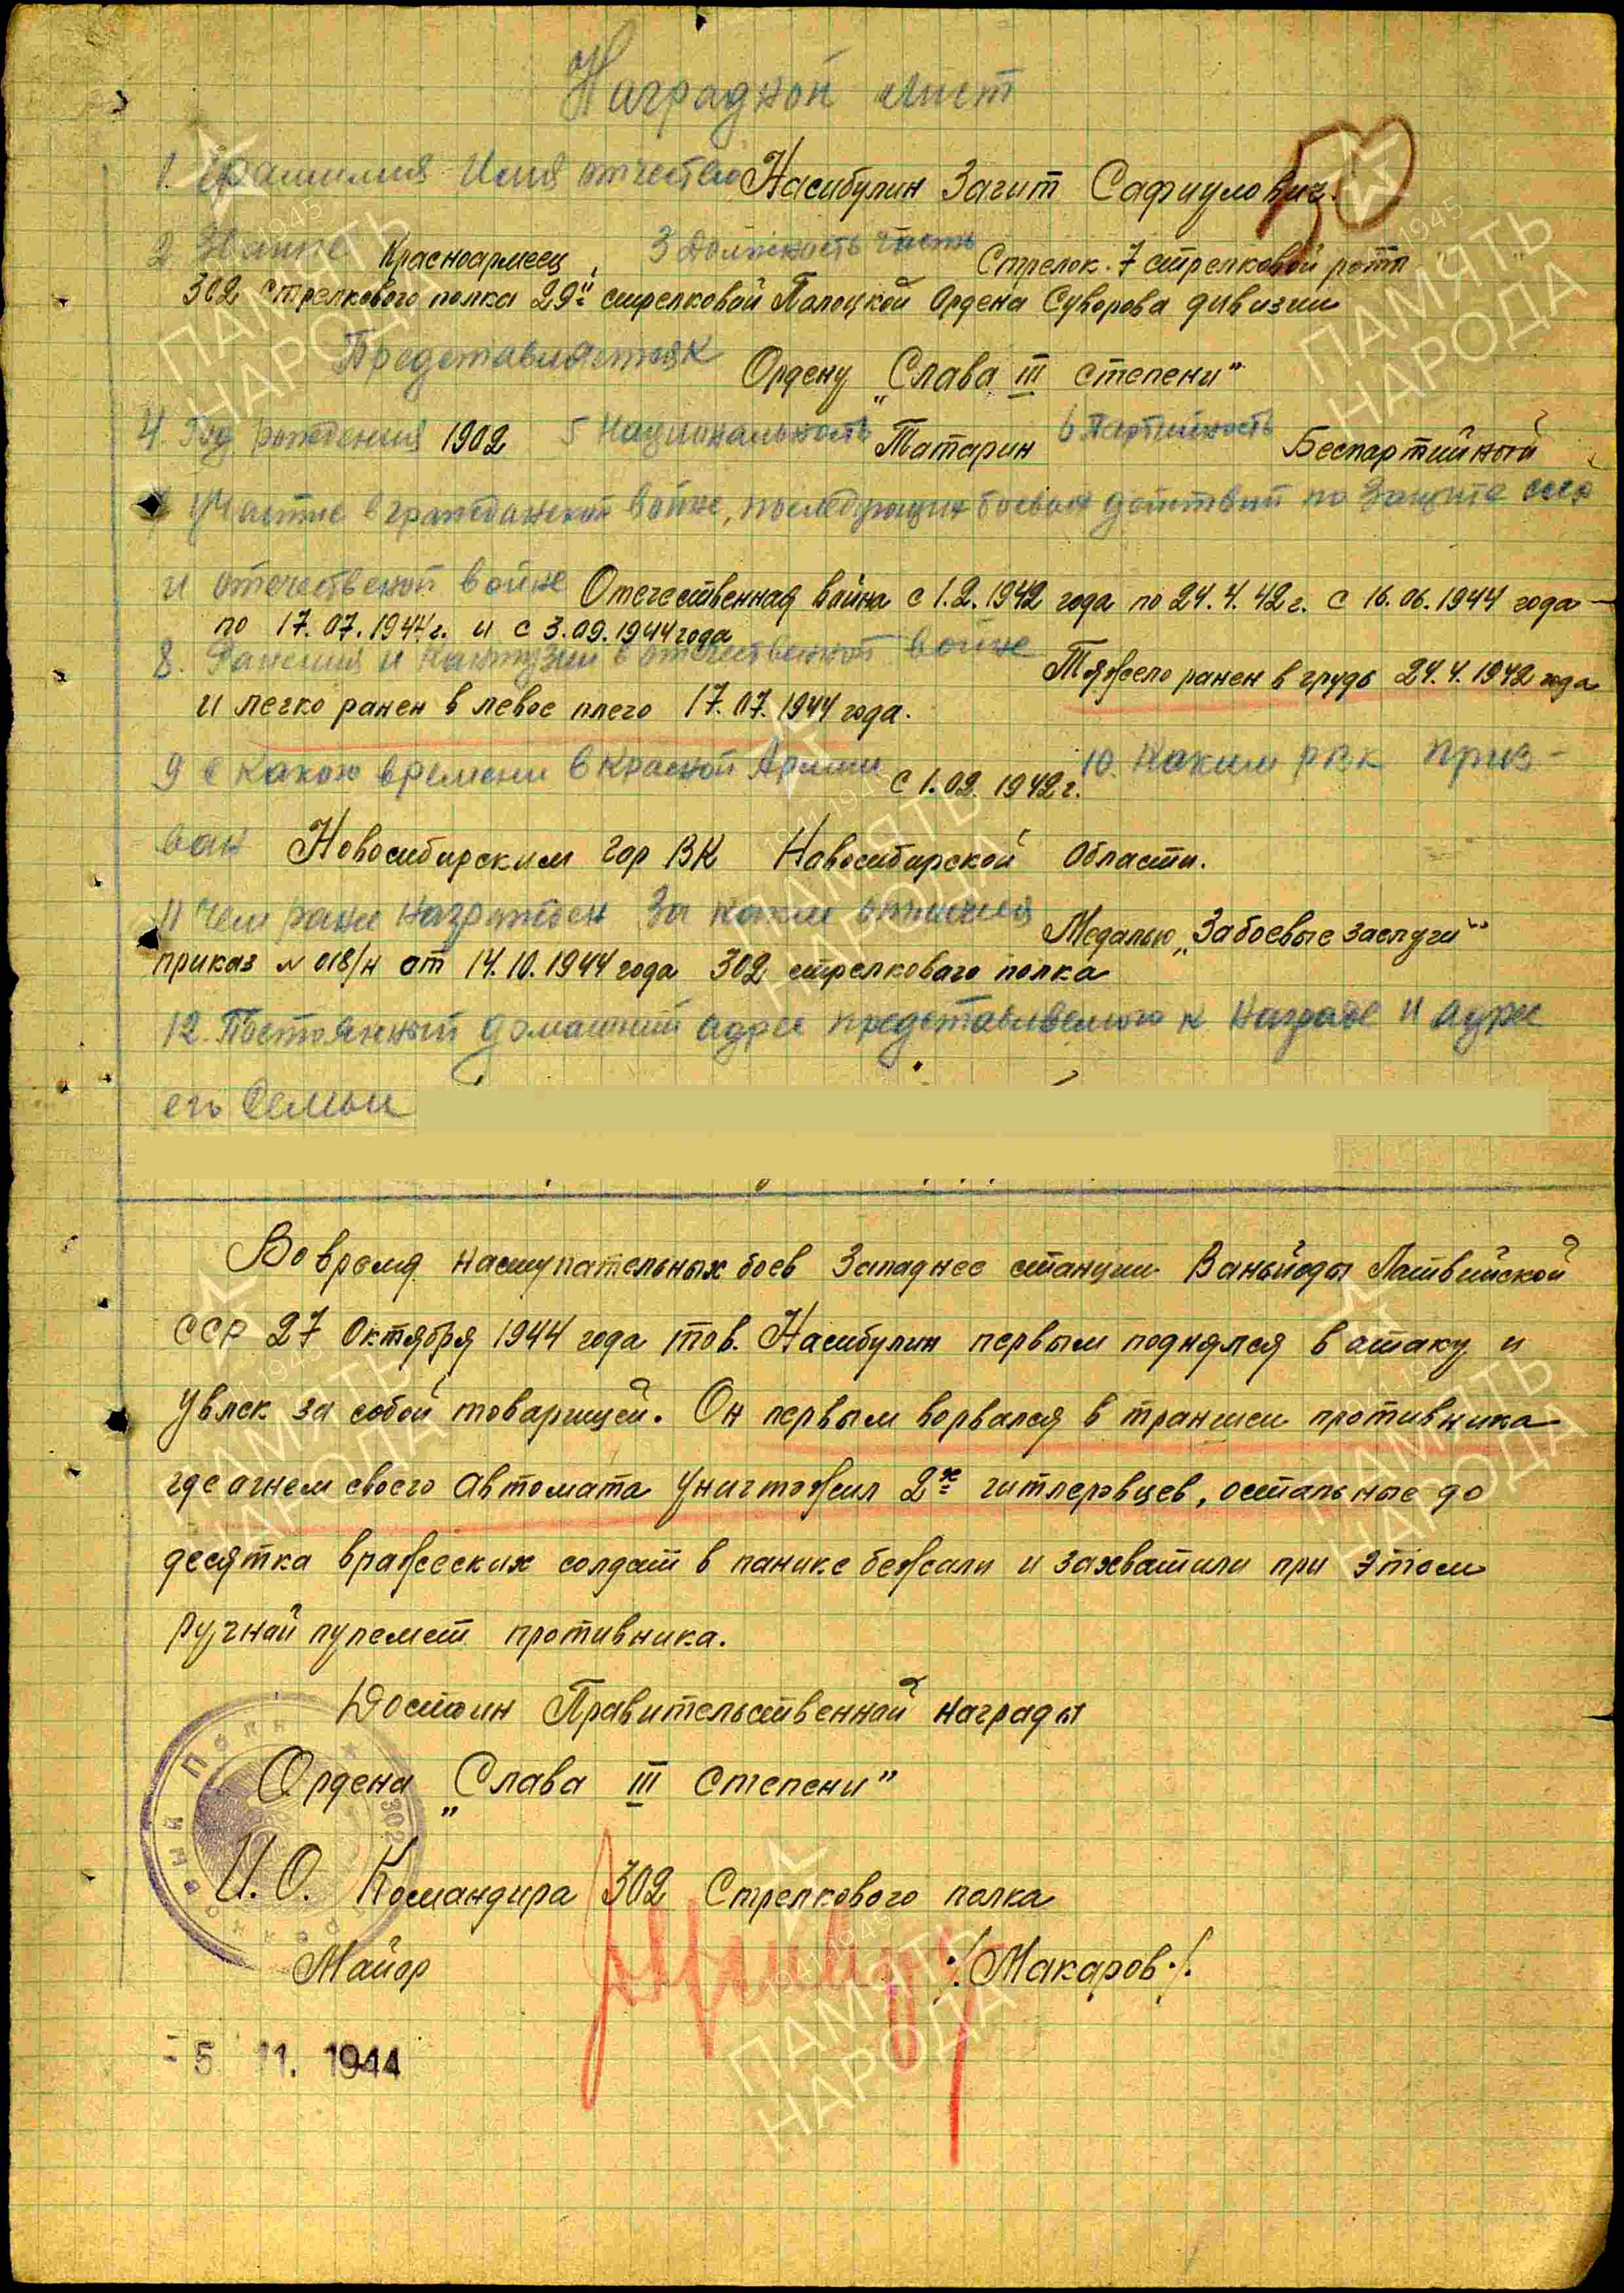 Наградной лист
1. Фамилия Имя отчество Насибулин Загит Сафиулович.
2 Звание Красноармеец, 3 Должность часть Стрелок. 7 стрелковой роты
302 стрелкового полка 29й стрелковой Палоцкой Ордена Суворова дивизии
Представляется к Ордену „Слава III степени"
4. Год рождения 1902 5 Национальность Татарин 6 Партийность Беспартийный
7 Участие в гражданской войне, последующих боевых действий по защите ссср
и отечественой войне Отечественная война с 1.2.1942 года по 24.4.42 г. с 16.06.1944 года —
по 17.07.1944 г. и с 3.09.1944 года
8. Ранения и контузии в отечественной войне Тяжело ранен в грудь 24.4.1942 года
и легко ранен в левое плечо 17.07.1944 года.
9 с какого времени в красной Армии с 1.02.1942 г. 10. Каким РВК приз-
ван Новосибирским Гор ВК Новосибирской области.
11 Чем ранее награжден за какие отличия Медалью „За боевые заслуги"
приказ № 018/н от 14.10.1944 года 302 стрелкового полка
12. Постоянный домашний адрес представляемого к награде и адрес
его семьи
Во время наступательных боев западнее станции Ваньйоды Латвийской
ССР 27 Октября 1944 года тов. Насибулин первым поднялся в атаку и
увлек за собой товарищей. Он первым ворвался в траншеи противника
где огнем своего автомата уничтожил 2х гитлеровцев, остальные до
десятка вражеских солдат в панике бежали и захватили при этом
ручной пулемет противника.
Достоин Правительственной награды
Ордена „Слава III степени"
И.О. Командира 302 Стрелкового полка
Майор /Макаров/.
- 5 11. 1944
302
ПАМЯТЬ
НАРОДА
1941-1945